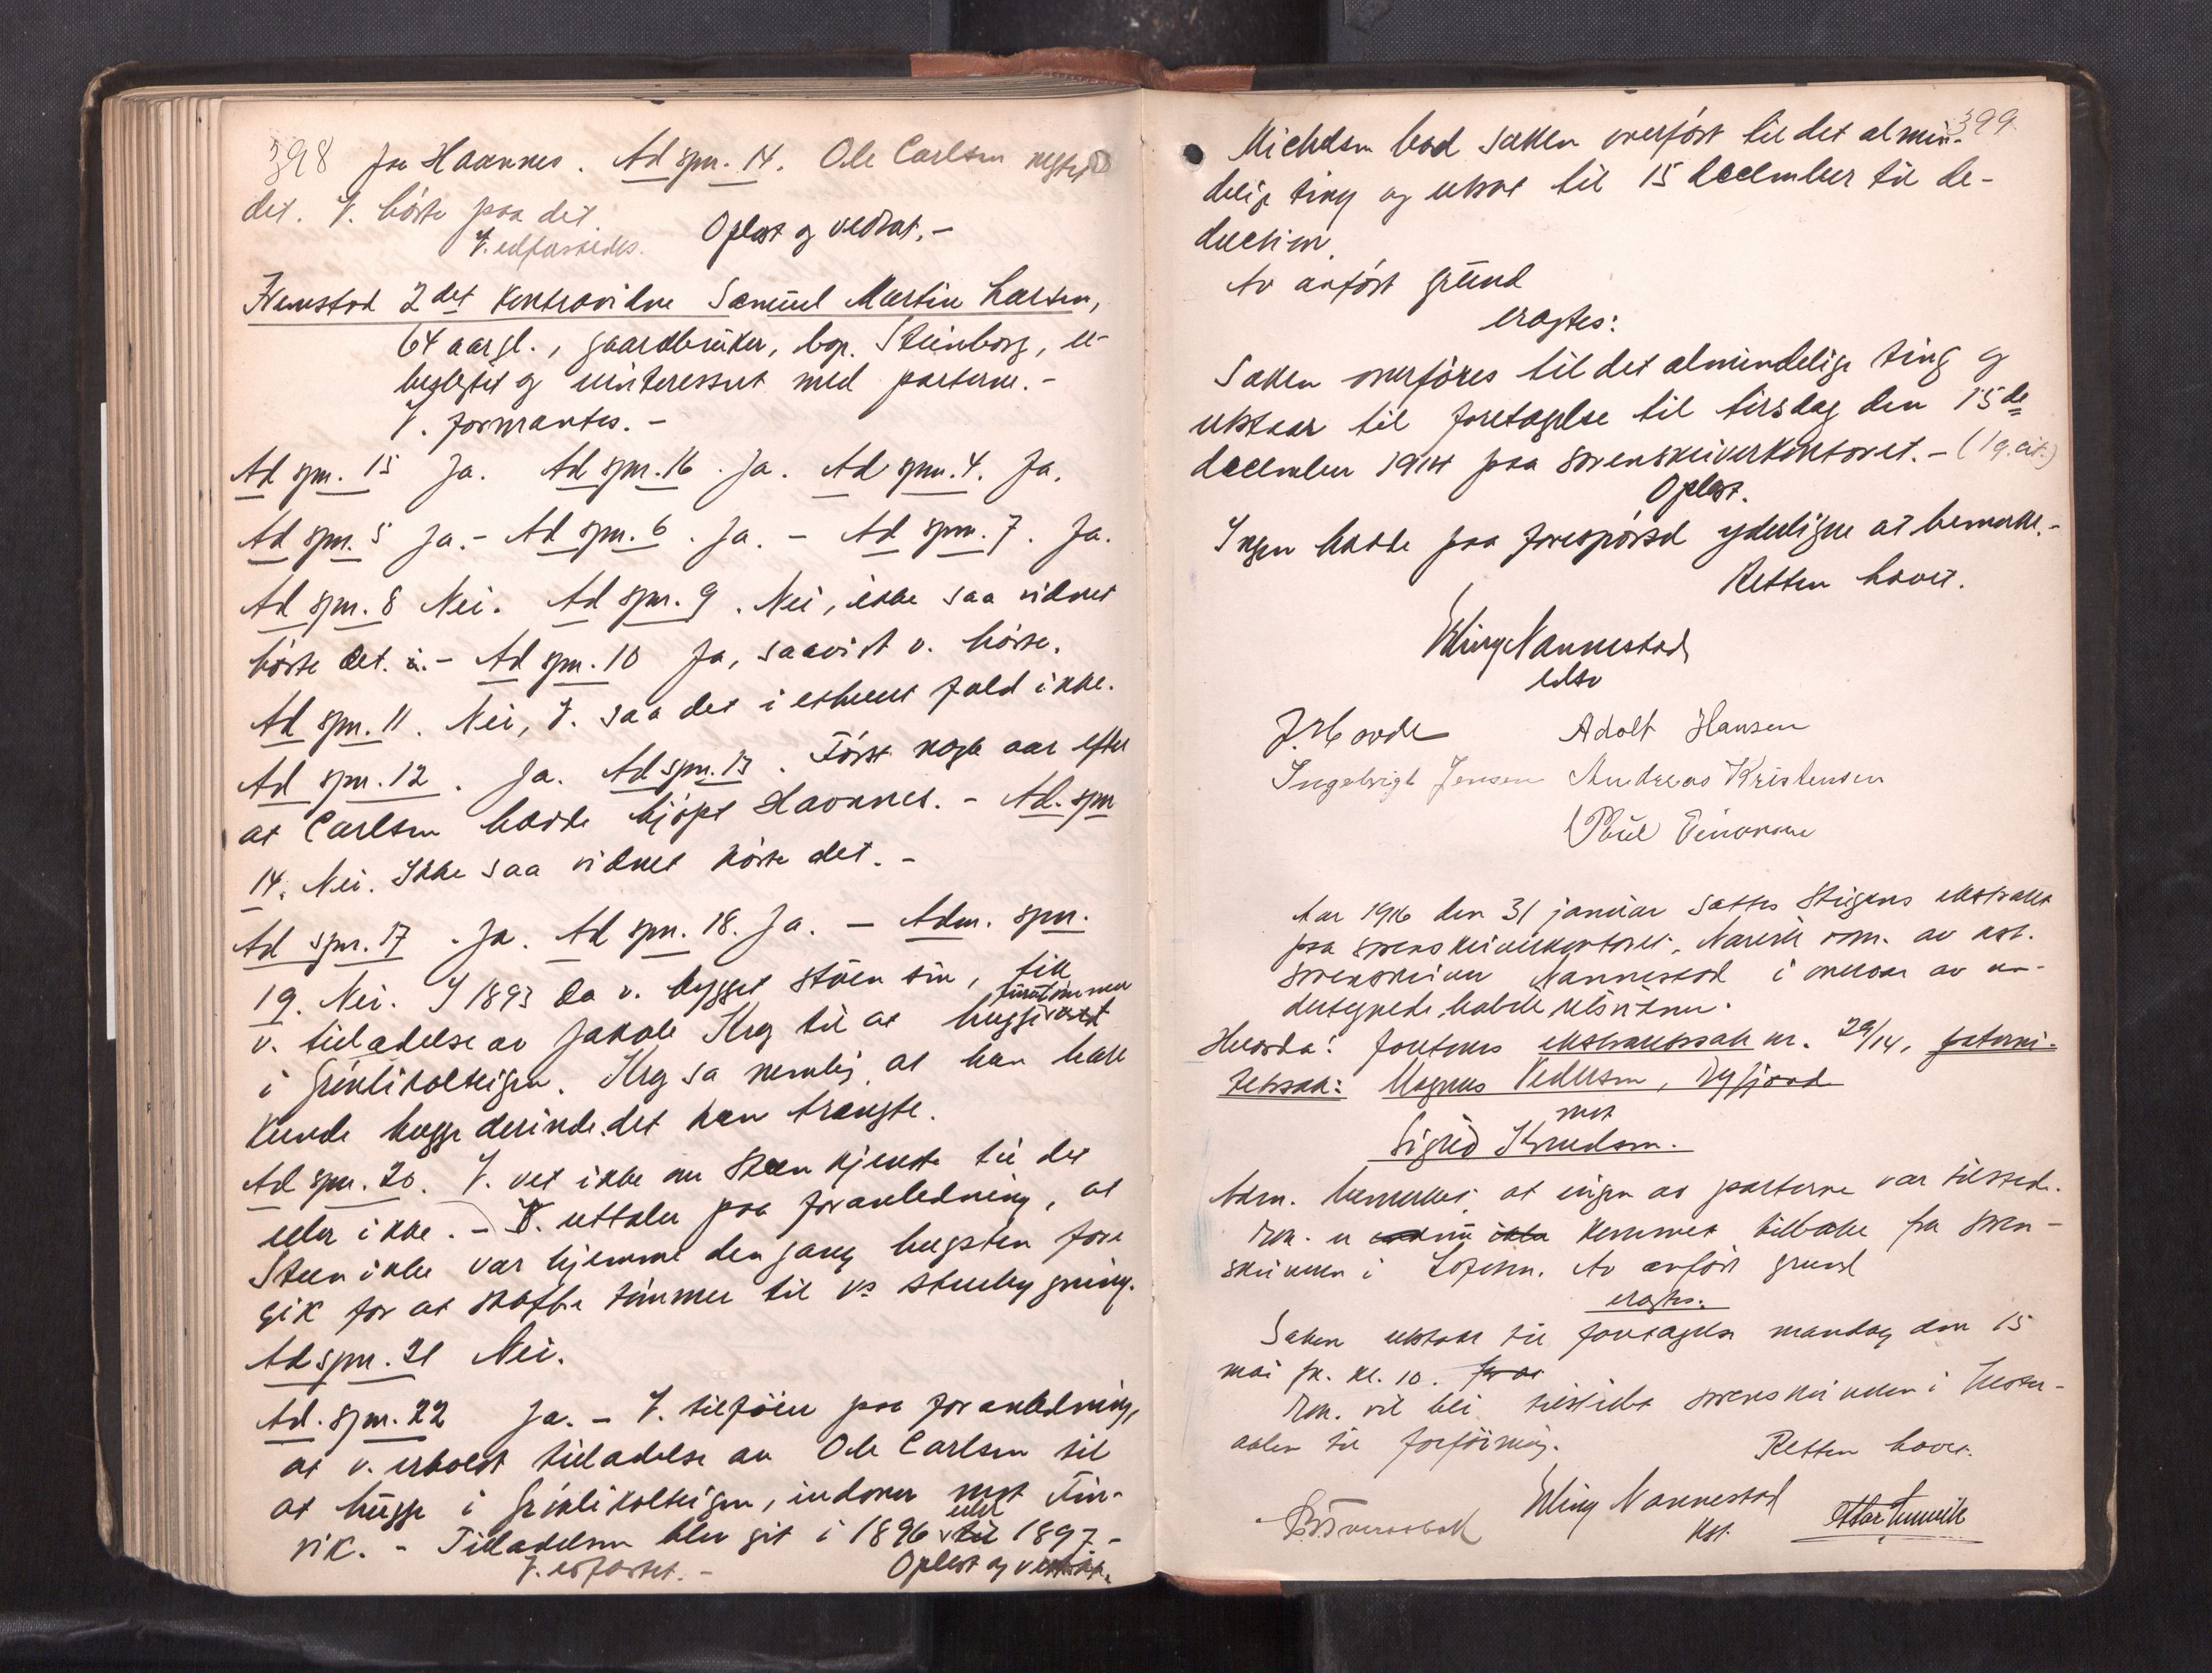 398 paa Haannes. Ad spm. 14. Ole Carlsen negtet
det. V. hörte paa det.
V. edfæstedes. Oplæst og vedtat. -
Fremstod 2det kontravidne Samuel Martin Larsen,
64 aar gl., gaardbruker, bop. Steinborg, u-
beslegtet og uinteressert med parterne. -
V. formantes. -
Ad spm. 15 Ja. Ad spm. 16. Ja. Ad spm. 4. Ja.
Ad spm. 5 Ja. - Ad spm. 6. Ja. - Ad spm. 7. Ja.
Ad spm. 8 Nei. Ad spm. 9. Nei, ikke saa vidnet
hörte det. - Ad spm. 10 Ja, saavidt v. hörte.
Ad spm. 11. Nei, V. saa det i ethvert fald ikke.
Ad spm. 12. Ja. Ad spm. 13. Först nogle aar efter
at Carlsen hadde kjöpt Haannes. - Ad. spm
14. Nei. Ikke saa vidnet hörte det. -
Ad spm. 17. Ja. Ad spm. 18. Ja. - Adm. spm.
19. Nei. I 1893 da v. bygget stuen sin, fik
v. tilladelse av Jakob Krog til at hugge tömmer
i Grönlikolteigen. Krog sa nemlig at han bare
kunde hugge derinde det han trængte.
Ad spm. 20. V. vet ikke om Steen kjendte til det
eller ikke. - V. uttaler paa foranledning, at
Steen ikke var hjemme den gang hugsten fore
gik for at skaffe tömmer til vs stuebygning.
Ad spm. 21 Nei.
Ad. spm. 22 Ja. - V. tilföier paa foranledning,
at v. erholdt tilladelse av Ole Carlsen til
at hugge i Grönlikolteigen, indover mot Fin-
vik. - Tilladelsen blev git i 1896 eller 1897. -
V. edfæstet. - Oplæst og vedtat.
399.
Michelsen bad saken overfört til det almin-
delig ting og utsat til 15 december til de-
duction.
Av anfört grund
eragtes:
Saken overföres til det almindelige ting og
utstaar til foretagelse til tirsdag den 15de
december 1914 paa sorenskriverkontoret. -
Oplæst.
Ingen hadde paa forespörsel yderligere at bemerke. -
Retten hævet.
Erling Nannestad
edsv
J. Hovde Adolf Hansen
Ingebrigt Jensen Andreas Kristensen
Paul Einarsen
Aar 1916 den 31 januar sattes Steigens ekstraret
paa sorenskriverkontoret, Narvik adm. av kst.
sorenskriver Nannestad i overvær av un-
dertegnede habile retsvidner.
Hvorda: foretokes ekstraretssak nr. 29/14, paterni-
tetssak: Magnus Pedersen, Dyfjord
mot
Sigrid Knudsen.
Adm. bemerket at ingen av parterne var tilstede.
Rekv. er kommet tilbake fra soren-
skriveren i Lofoten. Av anfört grund
eragtes:
Saken utstaar til foretagelse mandag den 15
mai fk. kl. 10.
Rekv. vil bli tilstillet sorenskriveren i Vester-
aalen til forföining.
Retten hævet.
Erling Nannestad
kst.